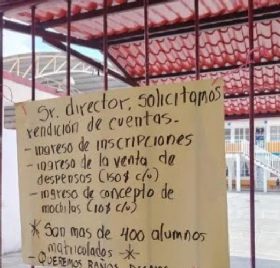 Sr. director, solicitamos
rendición de cuentas.-
- ingreso de inscripciones
- ingreso de la venta de
despensas (150$ c/u)
- ingreso de concepto de
mochilas (10$ c/u)
* Son mas de 400 alumnos
matriculados -*-
- QUEREMOS BAÑOS